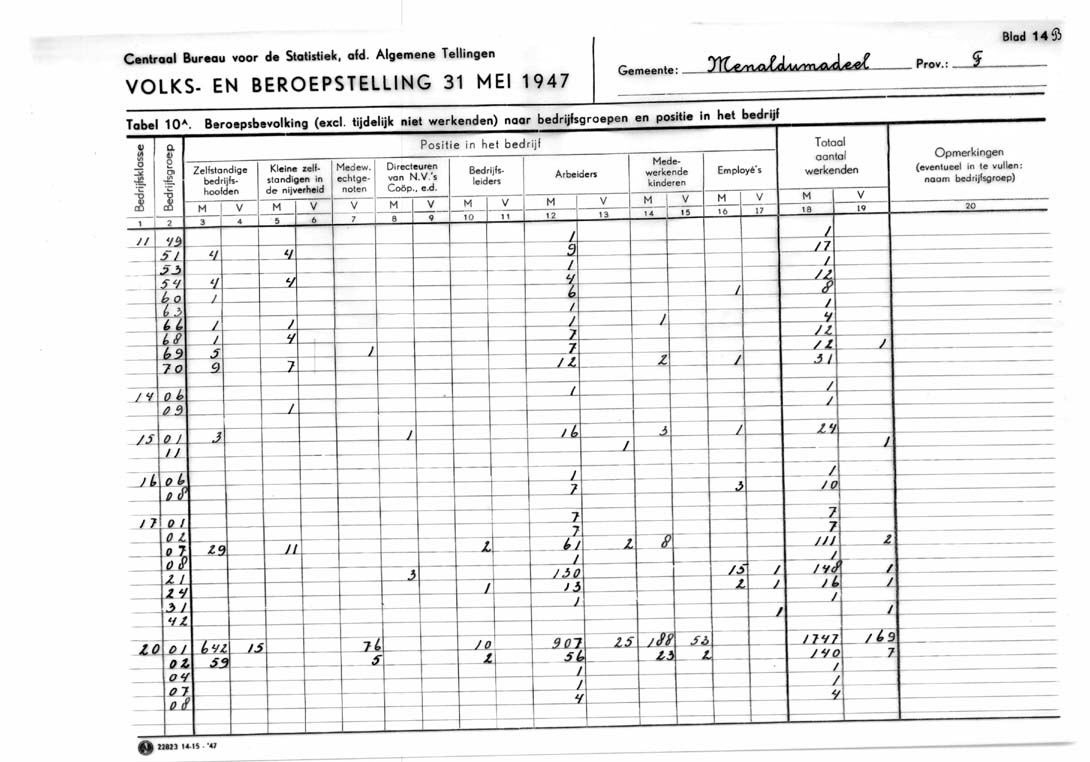 Blad 14 B
Centraal Bureau voor de Statistiek, afd. Algemene Tellingen
VOLKS- EN BEROEPSTELLING 31 MEI 1947
Gemeente: Menaldumadeel Prov.: F
Tabel 10A. Beroepsbevolking (excl. tijdelijk niet werkenden) naar bedrijfsgroepen en positie in het bedrijf
Bedrijfsklasse Bedrijfsgroep Positie in het bedrijf Totaal aantal werkenden Opmerkingen (eventueel in te vullen: naam bedrijfsgroep)
Zelfstandige bedrijfshoofden Kleine zelfstandigen in de nijverheid Medew. echtgenoten Directeuren van N.V.'s Coöp., e.d. Bedrijfsleiders Arbeiders Medewerkende kinderen Employé's
M V M V V M V M V M V M V M V M V
1 2 3 4 5 6 7 8 9 10 11 12 13 14 15 16 17 18 19 20
11 49 1 1
51 4 4 9 17
53 1 1
54 4 4 4 12
60 1 6 1 8
63 1 1
66 1 1 1 1 4
68 1 4 7 12
69 5 1 7 12 1
70 9 7 12 2 1 31
14 06 1 1
09 1 1
15 01 3 1 16 3 1 24
11 1 1
16 06 1 1
08 7 3 10
17 01 7 7
02 7 7
07 29 11 2 61 2 8 111 2
08 1 1
21 3 130 15 1 148 1
24 1 13 2 1 16 1
31 1 1
42 1 1
20 01 642 15 76 10 907 25 188 53 1747 169
02 59 5 2 56 23 2 140 7
04 1 1
07 1 1
08 4 4
22823 14-15 - '47